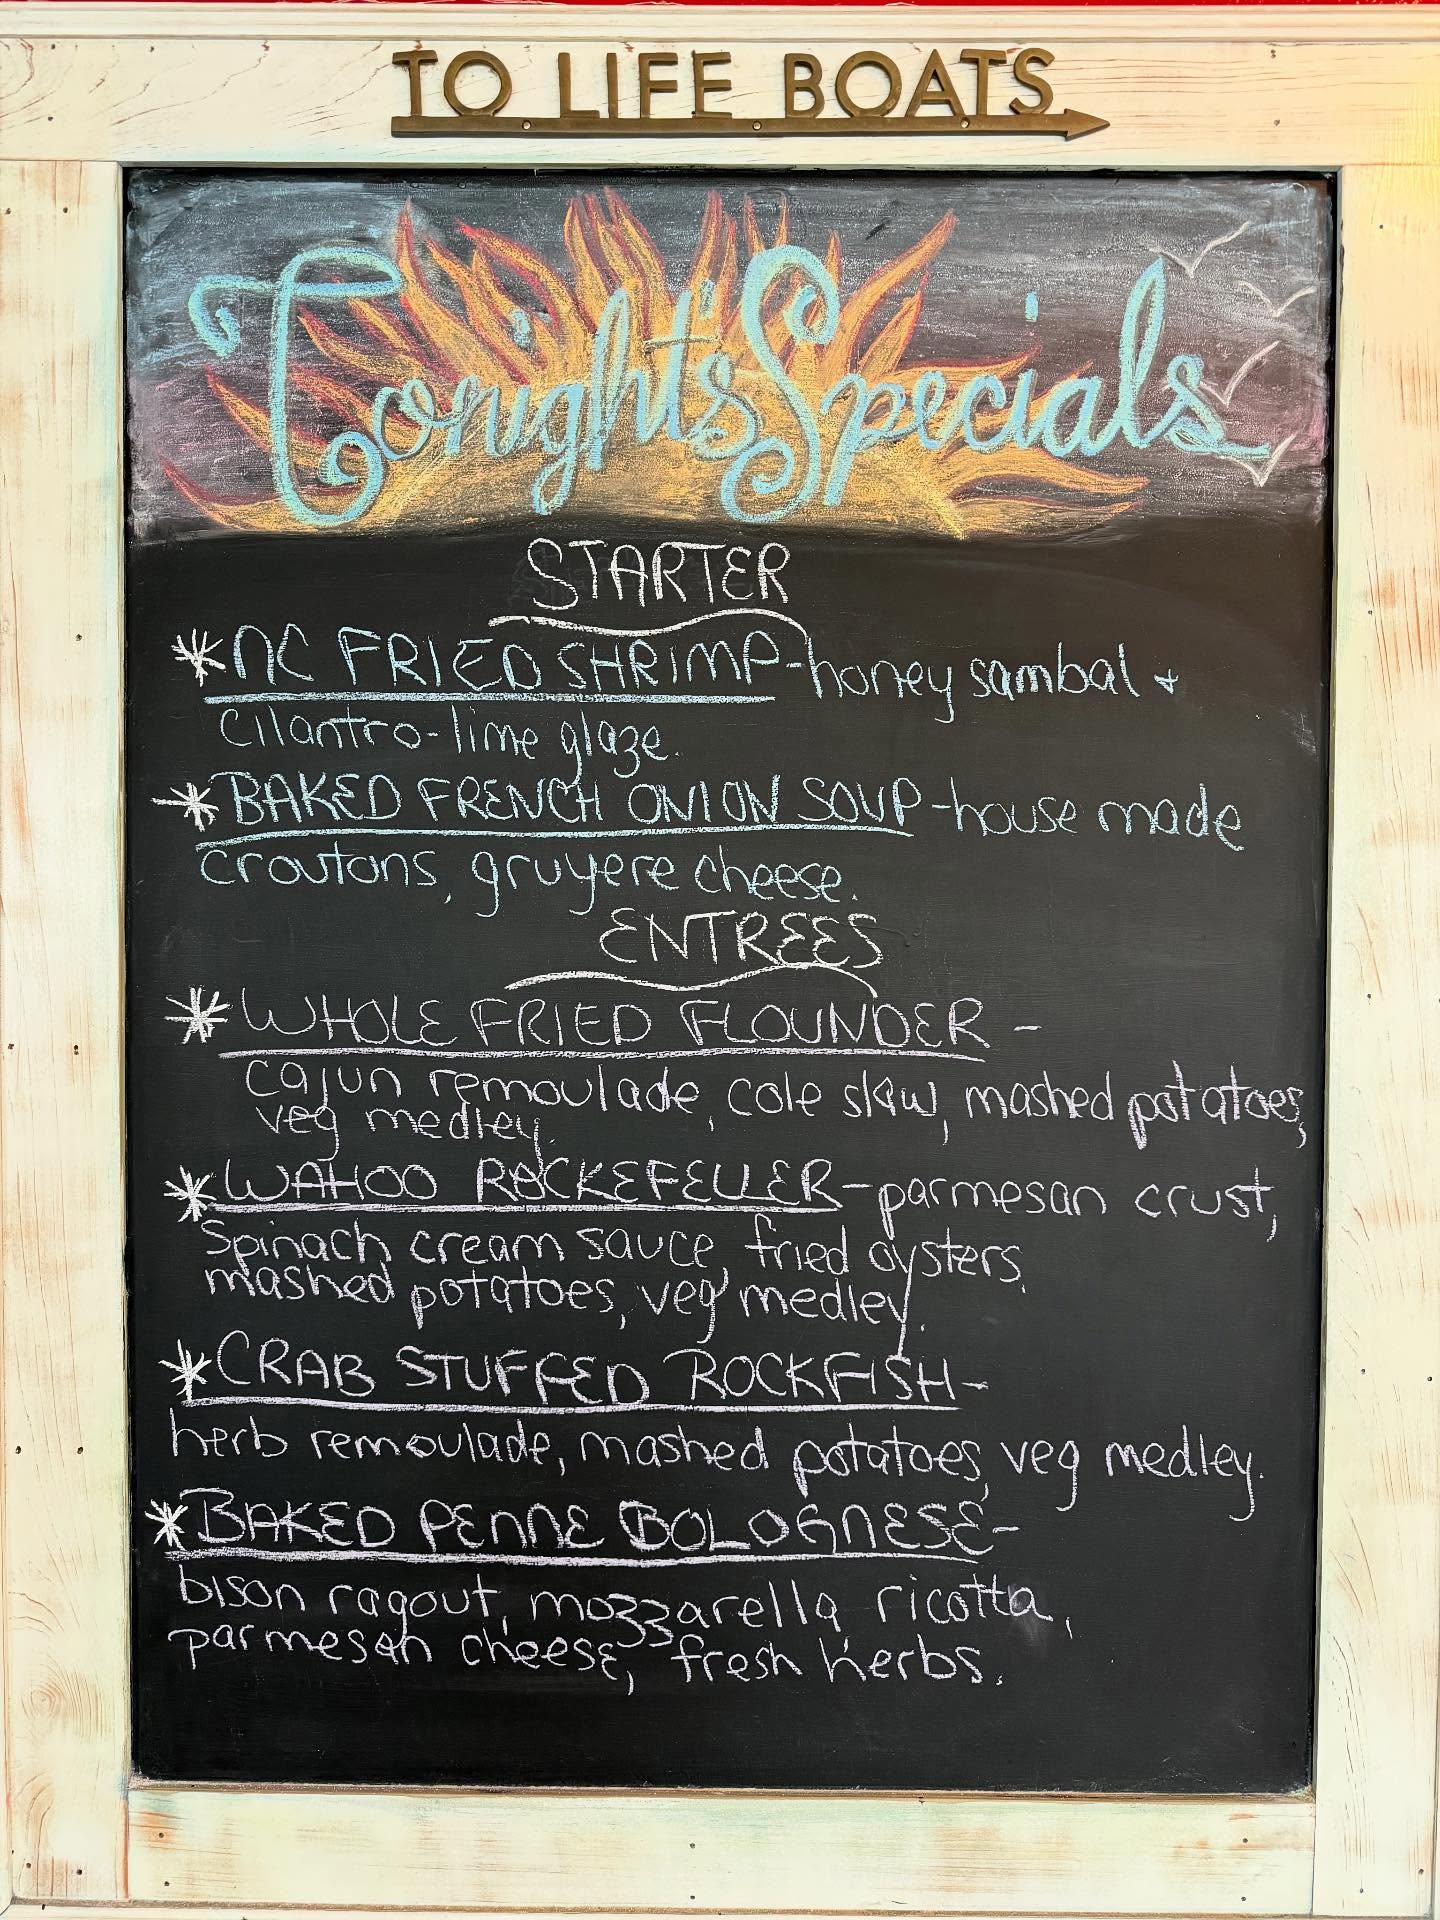 TO LIFE BOATS
Tonight's Specials
STARTER
*NC FRIED SHRIMP-honey sambal +
cilantro-lime glaze.
*BAKED FRENCH ONION SOUP-house made
croutons, gruyere cheese.
ENTREES
*WHOLE FRIED FLOUNDER-
cajun remoulade, cole slaw, mashed potatoes,
veg medley.
*WAHOO ROCKEFELLER-parmesan crust,
spinach cream sauce, fried oysters,
mashed potatoes, veg medley.
*CRAB STUFFED ROCKFISH-
herb remoulade, mashed potatoes, veg medley.
*BAKED PENNE BOLOGNESE-
bison ragout, mozzarella, ricotta,
parmesan cheese, fresh herbs.